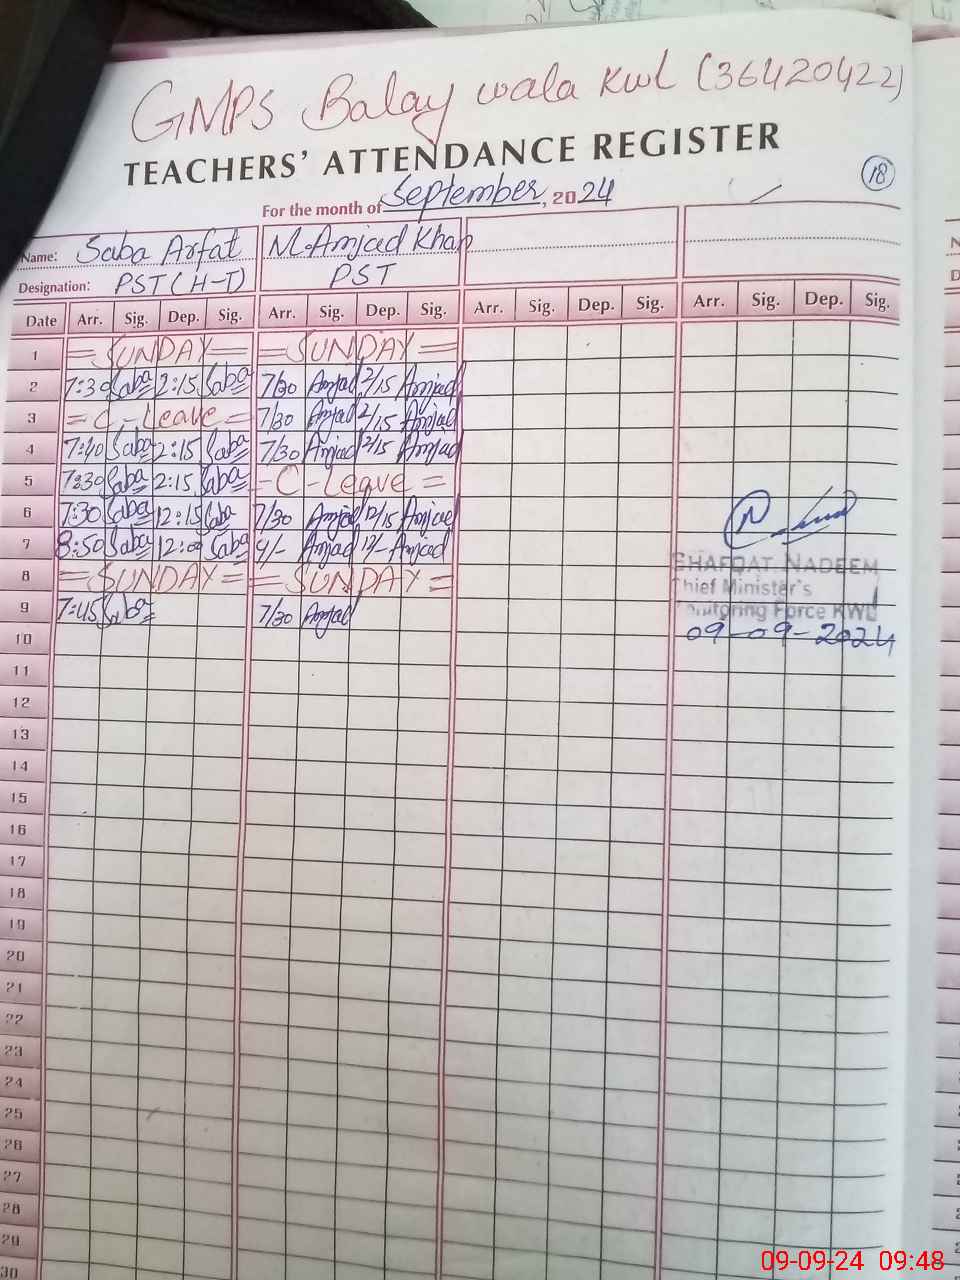 GMPS Balay wala Kwl (36420422)
TEACHERS' ATTENDANCE REGISTER
18
For the month of September, 2024
Name: Saba Arfat M. Amjad Khan
Designation: PST (H-T) PST
Date Arr. Sig. Dep. Sig. Arr. Sig. Dep. Sig. Arr. Sig. Dep. Sig. Arr. Sig. Dep. Sig.
1 = SUNDAY = = SUNDAY =
2 7:30 Saba 2:15 Saba 7/30 Amjad 2/15 Amjad
3 = C-Leave = 7/30 Amjad 2/15 Amjad
4 7:40 Saba 2:15 Saba 7/30 Amjad 2/15 Amjad
5 7:30 Saba 2:15 Saba - C-Leave =
6 7:30 Saba 12:15 Saba 7/30 Amjad 12/15 Amjad
7 8:50 Saba 12:00 Saba 9/- Amjad 12/- Amjad
8 = SUNDAY = = SUNDAY =
SHAFQAT NADEEM
Chief Minister's
9 7:45 Saba 7/30 Amjad
Monitoring Force KWL
10
09-09-2024
11
12
13
14
15
16
17
18
19
20
21
22
23
24
25
26
27
28
29
30
09-09-24 09:48